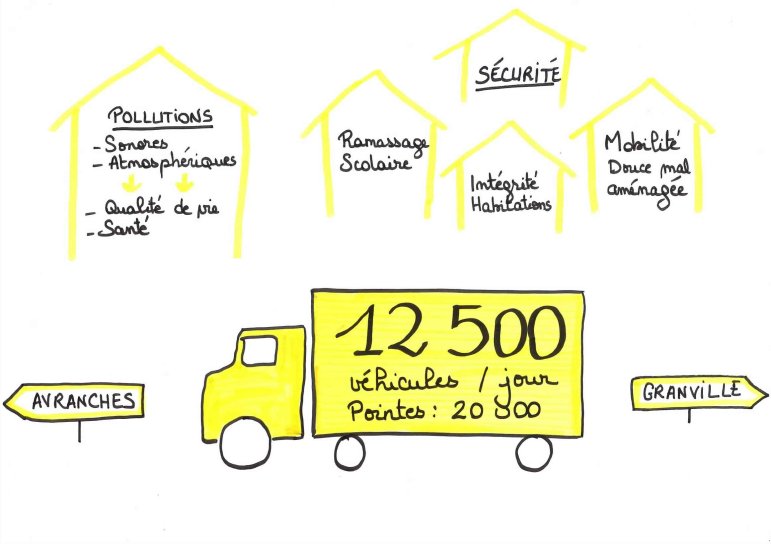 POLLUTIONS
- Sonores
- Atmosphériques
- Qualité de vie
- Santé
SÉCURITÉ
Ramassage
Scolaire
Intégrité
Habitations
Mobilité
Douce mal
aménagée
12 500
véhicules / jour
Pointes : 20 000
AVRANCHES
GRANVILLE